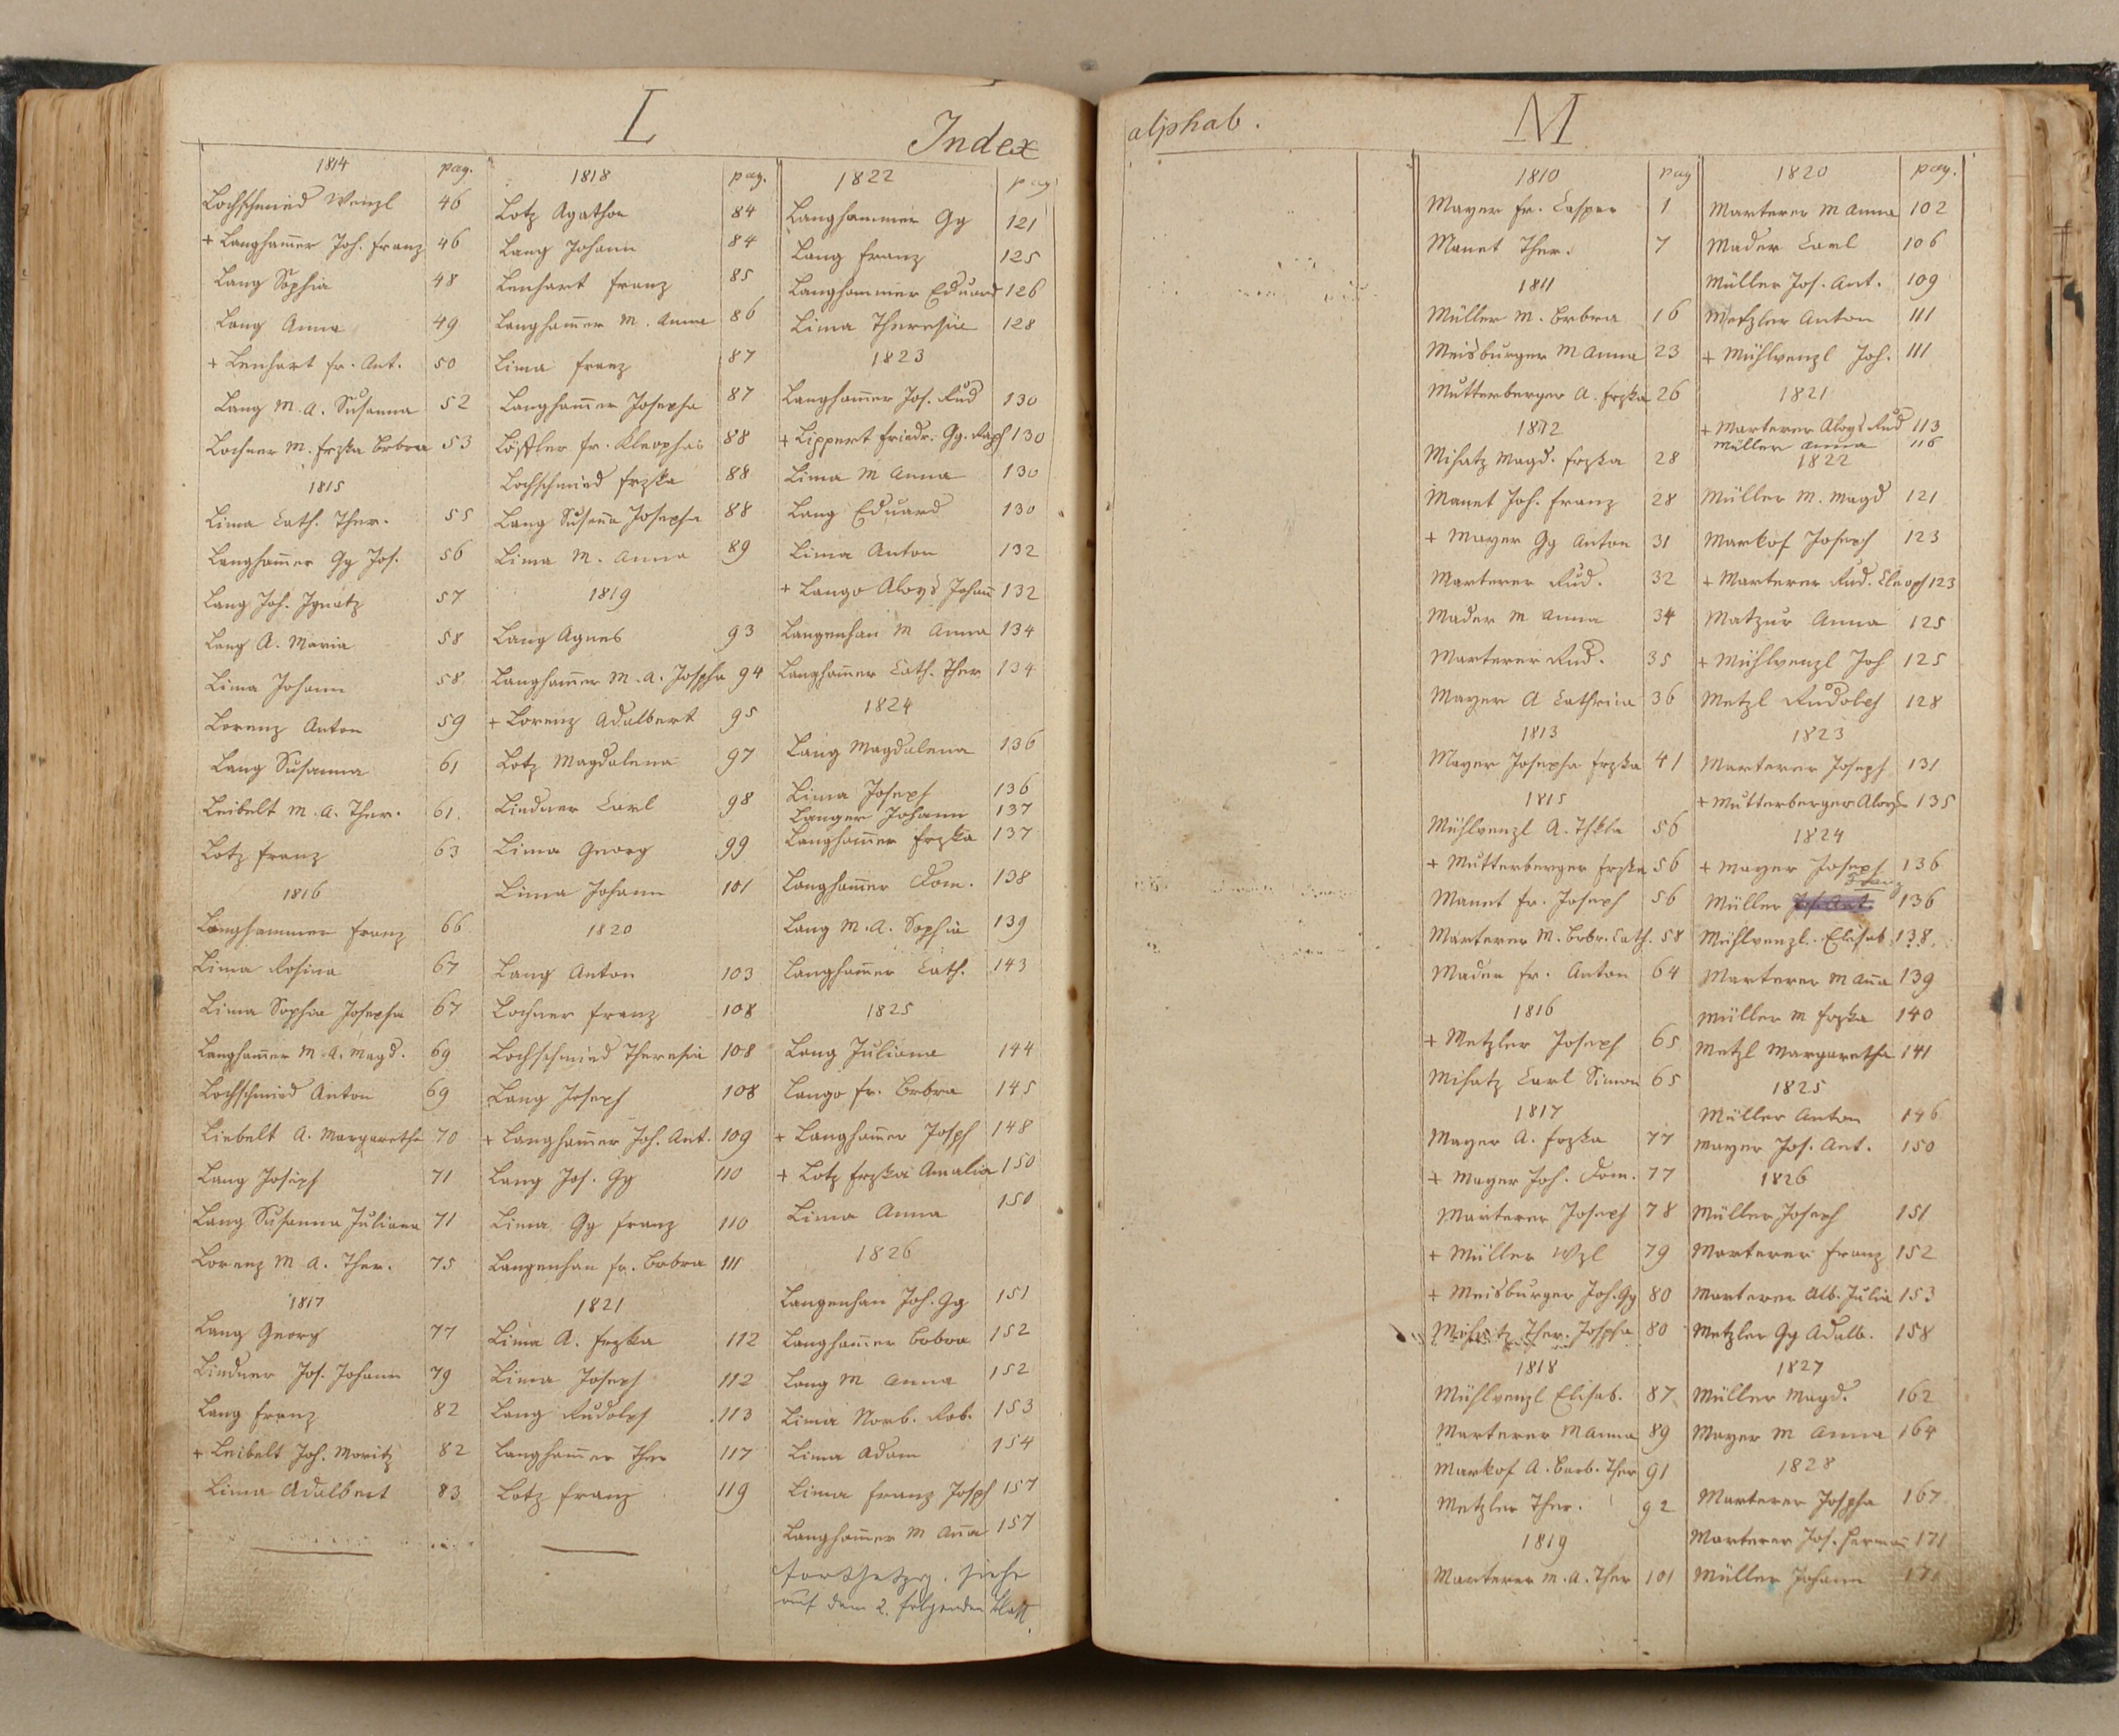 L
Index
1814 pag.
Lochschmied Wenzl 46
+ Langham̄er Joh. Franz 46
Lang Sophia 48
Lang Anna 49
+ Lenhart Fr. Ant. 50
Lang M. A. Susanna 52
Lochner M. Frzka Brbra 53
1815
Lima Cath. Ther. 55
Langham̄er Gg Jos. 56
Lang Joh. Ignatz 57
Lang A. Maria 58
Lima Johann 58
Lorenz Anton 59
Lang Susanna 61
Leibelt M. A. Ther. 61
Lotz Franz 63
1816
Langhammer Franz 66
Lima Rosina 67
Lima Sophia Josepha 67
Langham̄er M. A. Magd. 69
Lochschmied Anton 69
Liebelt A. Margaretha 70
Lang Joseph 71
Lang Susanna Juliana 71
Lorenz M A. Ther. 75
1817
Lang Georg 77
Lindner Jos. Johann 79
Lang Franz 82
+ Leibelt Joh. Moritz 82
Lima Adalbert 83
1818 pag.
Lotz Agatha 84
Lang Johann 84
Lenhart Franz 85
Langham̄er M. Anna 86
Lima Franz 87
Langham̄er Josepha 87
Löffler Fr. Kleophas 88
Lochschmied Frzka 88
Lang Susan̄a Josepha 88
Lima M. Anna 89
1819
Lang Agnes 93
Langham̄er M. A. Jospha 94
+ Lorenz Adalbert 95
Lotz Magdalena 97
Lindner Carl 98
Lima Georg 99
Lima Johann 101
1820
Lang Anton 103
Lochner Franz 108
Lochschmied Theresia 108
Lang Joseph 108
+ Langham̄er Joh. Ant. 109
Lang Jos. Gg 110
Lima Gg Franz 110
Langenhan Fr. Brbra 111
1821
Lima A. Frzka 112
Lima Joseph 112
Lang Rudolph 113
Langham̄er Ther 117
Lotz Franz 119
1822 pag
Langhammer Gg 121
Lang Franz 125
Langhammer Eduard 126
Lima Theresia 128
1823
Langham̄er Jos. Rud 130
+ Lippert Friedr. Gg. Raph 130
Lima M Anna 130
Lang Eduard 130
Lima Anton 132
+ Lango Aloys Johan̄ 132
Langenhan M Anna 134
Langham̄er Cath. Ther 134
1824
Lang Magdalena 136
Lima Joseph 136
Langer Johann 137
Langham̄er Frzka 137
Langham̄er Dom. 138
Lang M. A. Sophia 139
Langham̄er Cath. 143
1825
Lang Juliana 144
Lango Fr. Brbra 145
+ Langham̄er Josph 148
+ Lotz Frzka Amalia 150
Lima Anna 150
1826
Langenhan Joh. Gg 151
Langham̄er Brbra 152
Lang M Anna 152
Lima Norb. Rob. 153
Lima Adam 154
Lima Franz Josph 157
Langham̄er M An̄a 157
Fortsetzg. siehe
auf dem 2. folgenden Blatt
alphab.
M
1810 pag
Mayer Fr. Casper 1
Manet Ther. 7
1811
Müller M. Brbra 16
Meisburger M Anna 23
Mutterberger A. Frzka 26
1812
Mihatz Magd. Frzka 28
Manet Joh. Franz 28
+ Mayer Gg Anton 31
Marterer Rud. 32
Mader M Anna 34
Marterer Rud. 35
Mayer A Cathrina 36
1813
Mayer Josepha Frzka 41
1815
Mühlvenzl A. Thkla 56
+ Mutterberger Frzka 56
Manet Fr. Joseph 56
Marterer M. Brbr. Cath. 58
Mader Fr. Anton 64
1816
+ Metzler Joseph 65
Mihatz Carl Simon 65
1817
Mayer A. Frzka 77
+ Mayer Joh. Dom. 77
Marterer Joseph 78
+ Müller Wzl 79
+ Meisburger Joh. Gg 80
Mihatz Ther. Jospha 80
1818
Mühlvenzl Elisab. 87
Marterer M Anna 89
Markof A. Barb. Ther 91
Metzler Ther. 92
1819
Marterer M. A. Ther 101
1820 pag.
Marterer M Anna 102
Mader Carl 106
Müller Jos. Ant. 109
Metzler Anton 111
+ Mühlvenzl Joh. 111
1821
+ Marterer Aloys Rud 113
Müller Anna 116
1822
Müller M. Magd 121
Markof Joseph 123
+ Marterer Rud. Cleoph 123
Matzur Anna 125
+ Mühlvenzl Joh 125
Metzl Rudolph 128
1823
Marterer Joseph 131
+ Mutterberger Aloys 135
1824
+ Mayer Joseph 136
Müller 136
Mühlvenzl Elisab 138
Marterer M An̄a 139
Müller M Frzka 140
Metzl Margaretha 141
1825
Müller Anton 146
Mayer Jos. Ant. 150
1826
Müller Joseph 151
Marterer Franz 152
Marterer Alb. Julia 153
Metzler Gg Adalb. 158
1827
Müller Magd. 162
Mayer M Anna 164
1828
Marterer Jospha 167
Marterer Jos. Herman̄ 171
Müller Johann